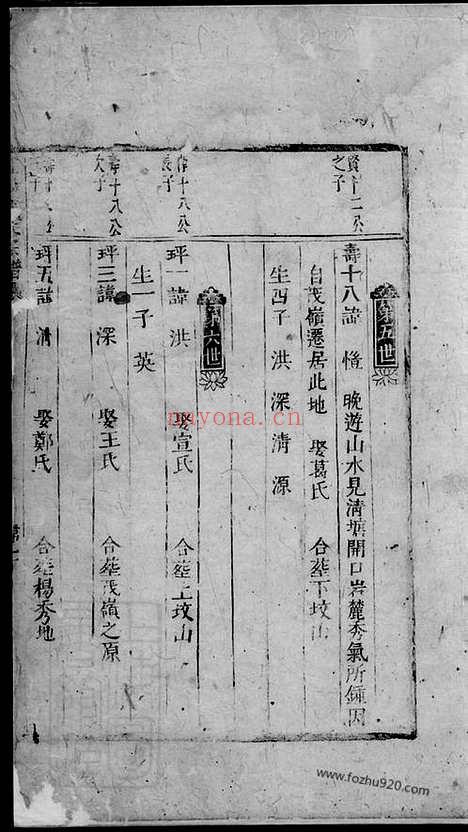 第五世
賢十二公
之子
壽十八諱 晚遊山水見清塘開口岩麓秀氣所鍾因
自茂嶺遷居此地 娶葛氏 合葬下坟山
生四子 洪 深 清 源
第六世
壽十八公
長子
玶一諱洪 娶宣氏 合葬上坟山
生一子 英
壽十八公
次子
玶三諱深 娶王氏 合葬茂嶺之原
壽十八公
玶五諱清 娶鄭氏 合葬楊秀地
nayona.cn
www.fozhu920.com